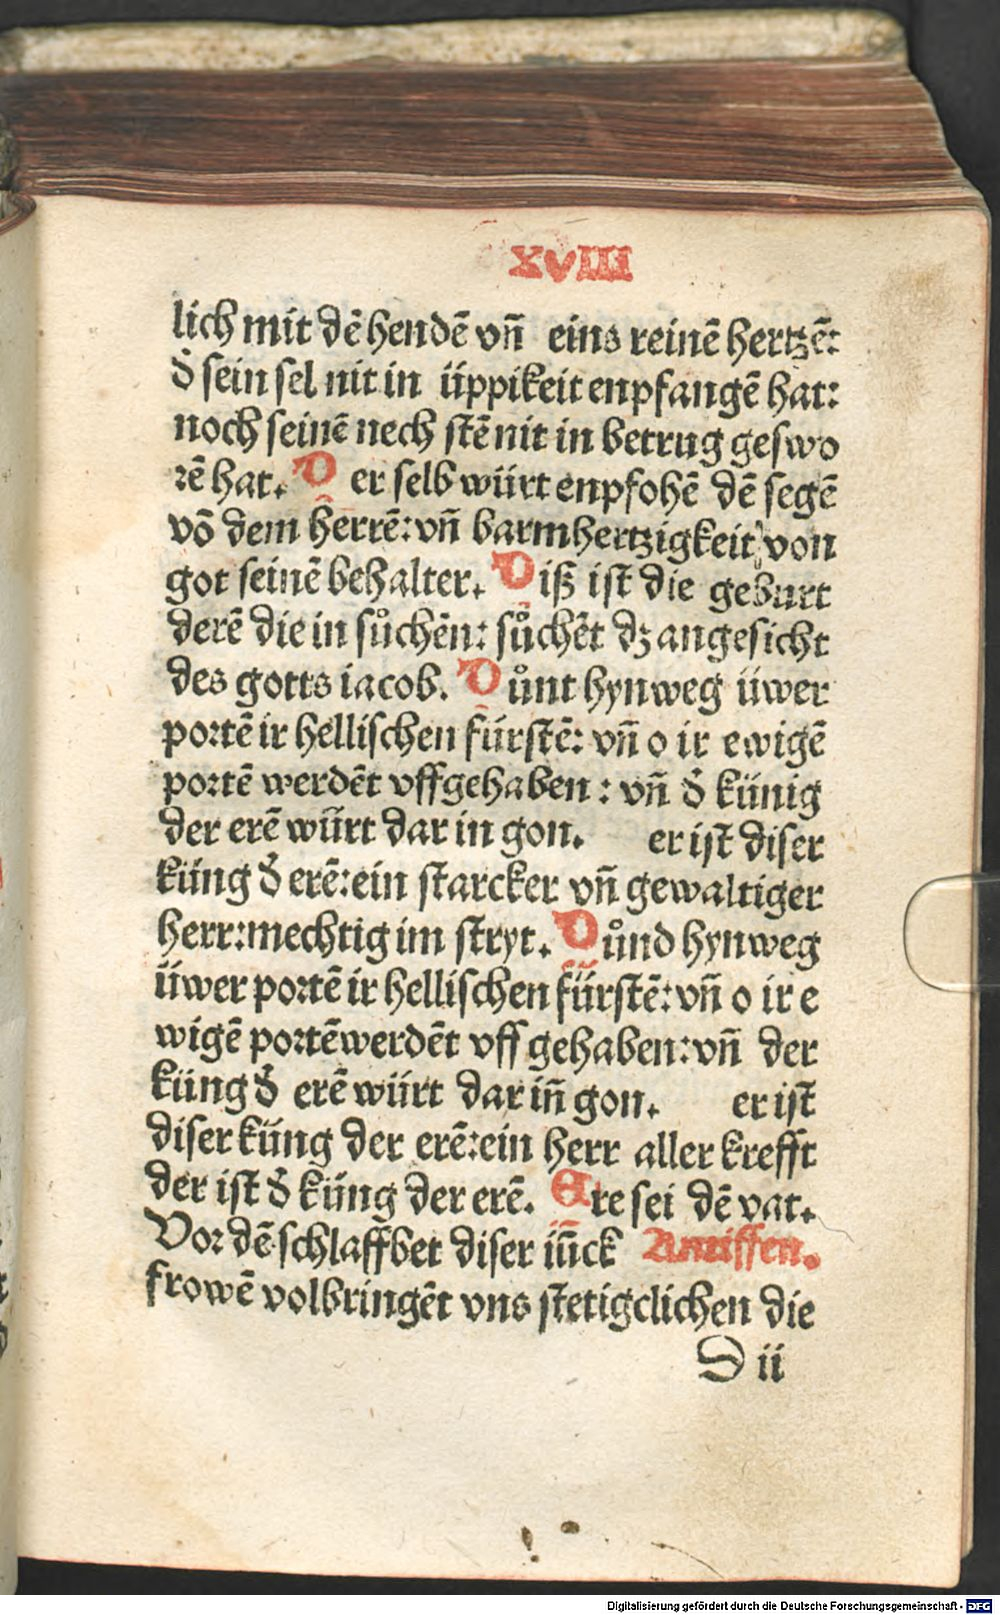 XVIII
lich mit dē hendē vñ eins reinē hertzē:
d̄ sein sel nit in üppikeit enpfangē hat:
noch seinē nech stē nit in betrug geswo
rē hat. D er selb würt enpfohē dē segē
vō dem herrē: vñ barmhertzigkeit von
got seinē behalter. Diß ist die geburt
derē die in sůchēn: sůchēt dz angesicht
des gotts iacob. D ůnt hynweg üwer
portē ir hellischen fürstē: vñ o ir ewigē
portē werdēt vffgehaben: vñ d̄ künig
der erē würt dar in gon. er ist diser
küng d̄ erē: ein starcker vñ gewaltiger
herr: mechtig im stryt. D ůnd hynweg
üwer portē ir hellischen fürstē: vñ o ir e
wigē portē werdēt vff gehaben: vñ der
küng d̄ erē würt dar iñ gon. er ist
diser küng der erē: ein herr aller krefft
der ist d̄ küng der erē. Ere sei dē vat.
Vor dē schlaffbet diser iūck Antiffen.
frowē volbringēt vns stetigclichen die
D ii
Digitalisierung gefördert durch die Deutsche Forschungsgemeinschaft - DFG